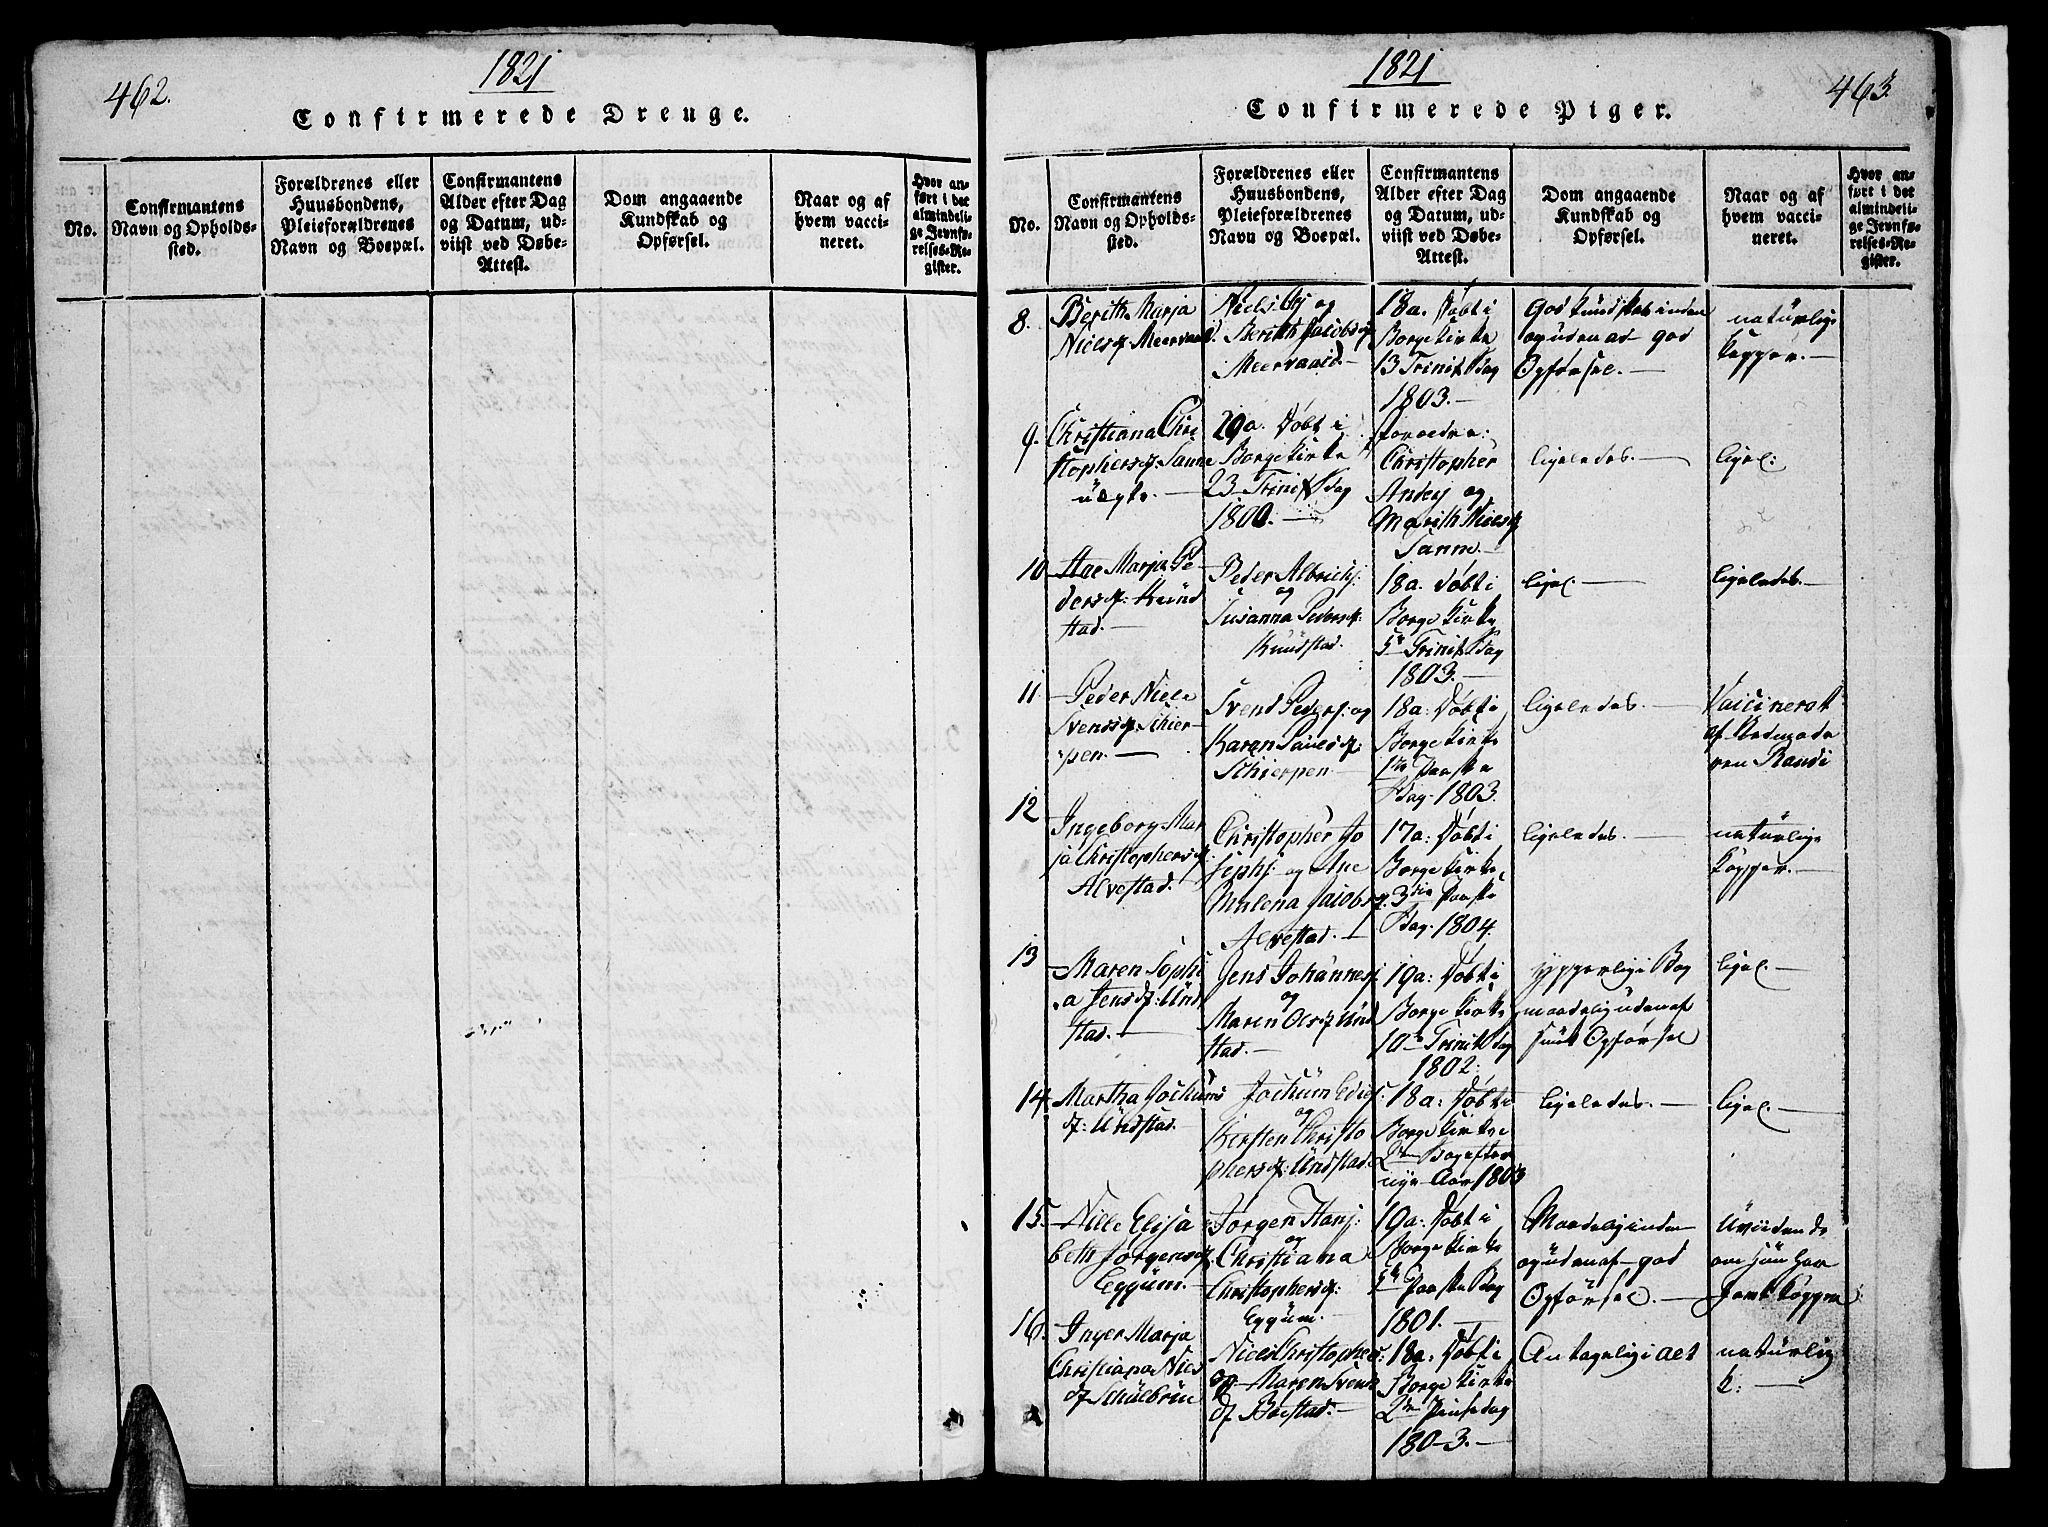 462.
1821
Confirmerede Drenge.
No.
Confirmantens
Navn og Opholds-
sted.
Forældrenes eller
Huusbondens,
Pleieforældrenes
Navn og Boepæl.
Confirmantens
Alder efter Dag
og Datum, ud-
viist ved Døbe-
Attest.
Dom angaaende
Kundskab og
Opførsel.
Naar og af
hvem vacci-
neret.
Hvor an-
ført i det
almindeli-
ge Jevnfø-
relses-Re-
gister.
1821
463.
Confirmerede Piger.
No.
Confirmantens
Navn og Opholds-
sted.
Forældrenes eller
Huusbondens,
Pleieforældrenes
Navn og Boepæl.
Confirmantens
Alder efter Dag
og Datum, ud-
viist ved Døbe-
Attest.
Dom angaaende
Kundskab og
Opførsel.
Naar og af
hvem vacci-
neret.
Hvor an-
ført i det
almindeli-
ge Jevnfø-
relses-Re-
gister.
8.
Berith Marja
Nielsdr Meervaald.
Niels og
Berith Jacobsdr
Meervaald
18 a. Døbt i
Borge Kirke
13 Trinit. Sdag
1803.
God Kundskab inden
og uden ad god
Opførsel.
naturlige
Kopper.
9.
Christiana Chri
stophersdr: Sanne
uægte.
20 a. Døbt i
Borge Kirke
23 Trinit. Sdag
1800.
foræld:
Christopher
Andersj og
Marith Nielsdr
Sanne.
ligeledes.
ligel:
10
Ane Marja Pe
dersdr: Knud
stad.
Peder Albrichsj.
og
Susanna Pedersdr:
Knudstad.
18 a. Døbt i
Borge Kirke
5te Trinit. Sdag
1803.
ligel.
ligeledes.
11.
Peder Niele
Svensdr: Schier-
pen.
Svend Pedersj: og
Karen Paulsdr:
Schierpen.
18 a: Døbt i
Borge Kirke
1te Paaske
dag. 1803.
ligeledes.
Vaccineret
af Jordemode
ren Randi
12
Ingeborg Mar
ja Christophersdr.
Alvestad.
Christopher Jo
sephsj: og Ane
Malena Jacobs
dr. Alvestad.
17 a: Døbt i
Borge Kirke
3die Paaske
dag. 1804.
ligeledes.
naturlige
Kopper.
13
Maren Sophi
a Jensdr: Und
stad.
Jens Johannesj
og
Maren Olsdr Und
stad.
19 a: Døbt i
Borge Kirke
10de Trinit. Sdag
1802.
ypperlig i Bog
maadelig udenaf
smuk Opførsel
ligel.
14.
Martha Jochums
dr: Undstad.
Jochum
og
Kirsten Christo
phersdr: Undstad.
18 a: Døbt
Borge Kirke
2den Dag efter
nye Aar 1803
ligeledes.
ligel.
15.
Nille Elisa
beth Jørgensdr.
Eggum.
Jørgen Hansj:
og
Christiana
Christophersdr:
Eggum.
19 a: Døbt i
Borge Kirke
5te Paaske Sdag
1801.
Maadelig inden
og udenaf god
Opførsel.
Uvidende
om hun har
havt Kopper
16.
Inger Marja
Christiana Niels
dr Schulbrue
Niels Christophers:
og Maren Svens
dr Bøestad.
18 a: Døbt i
Borge Kirke
2den Pinsedag
1803.
Antagelig i alt
naturlig
k: